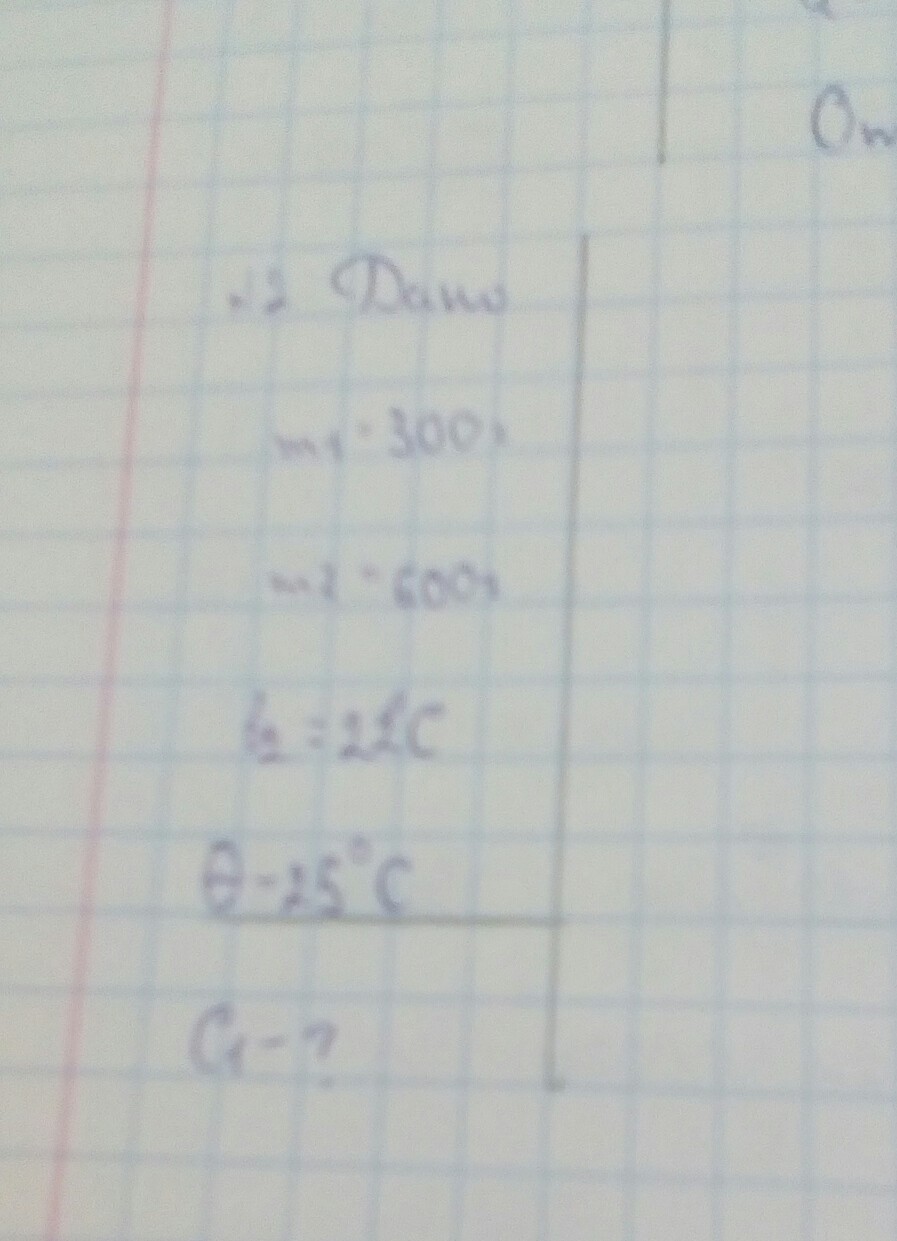 От
№2 Дано
m1 = 300г
m2 = 600г
t2 = 22°C
θ - 25°C
C1 - ?